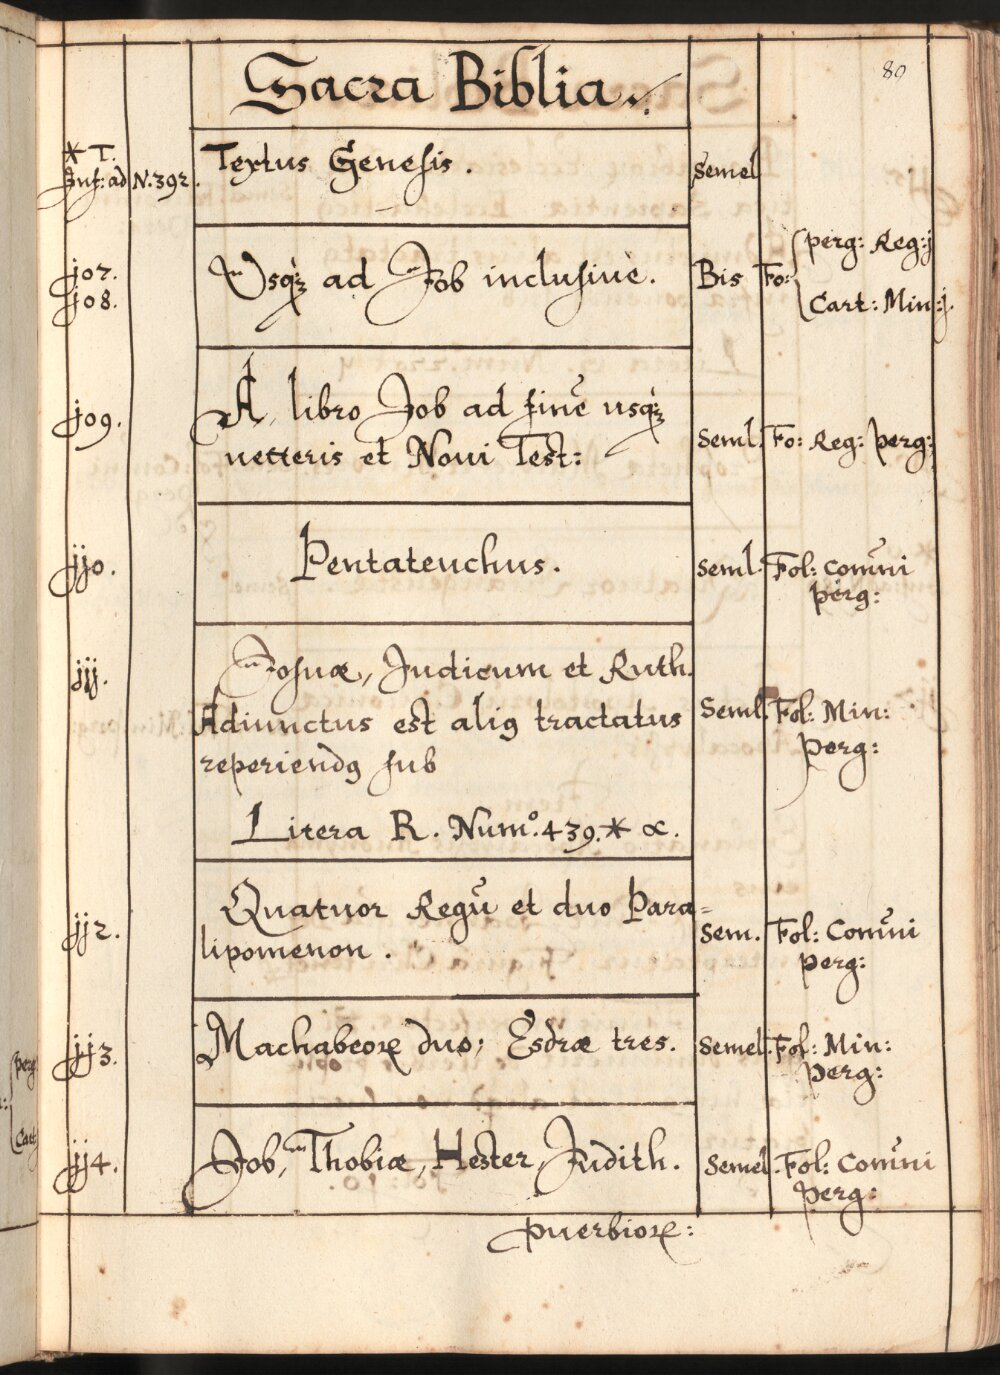 89
Sacra Biblia.
* T.
Inf: ad N. 392.
Textus Genesis.
Semel
j07.
j08.
Usq₃ ad Job inclusivè.
Bis Fo:
perg: Reg: j
Cart: Min: j.
j09.
A libro Job ad finē usq₃
vetteris et Novi Test:
Seml. Fo: Reg: perg:
jj0.
Pentateuchus.
Seml. Fol: Com̄uni
perg:
jjj.
Josuæ, Judicum et Ruth.
Adiunctus est aliꝯ tractatus
reperiendꝯ sub
Litera R. Numº. 439. * α.
Seml. Fol: Min:
perg:
jj2.
Quatuor Regū et duo Para=
lipomenon.
Sem. Fol: Com̄uni
perg:
jj3.
Machabeoꝝ duo; Esdræ tres.
Semel. Fol: Min:
perg:
jj4.
Job, Thobiæ, Hester, Judith.
Semel. Fol: Com̄uni
perg:
puerbioꝝ:
perg
Cart